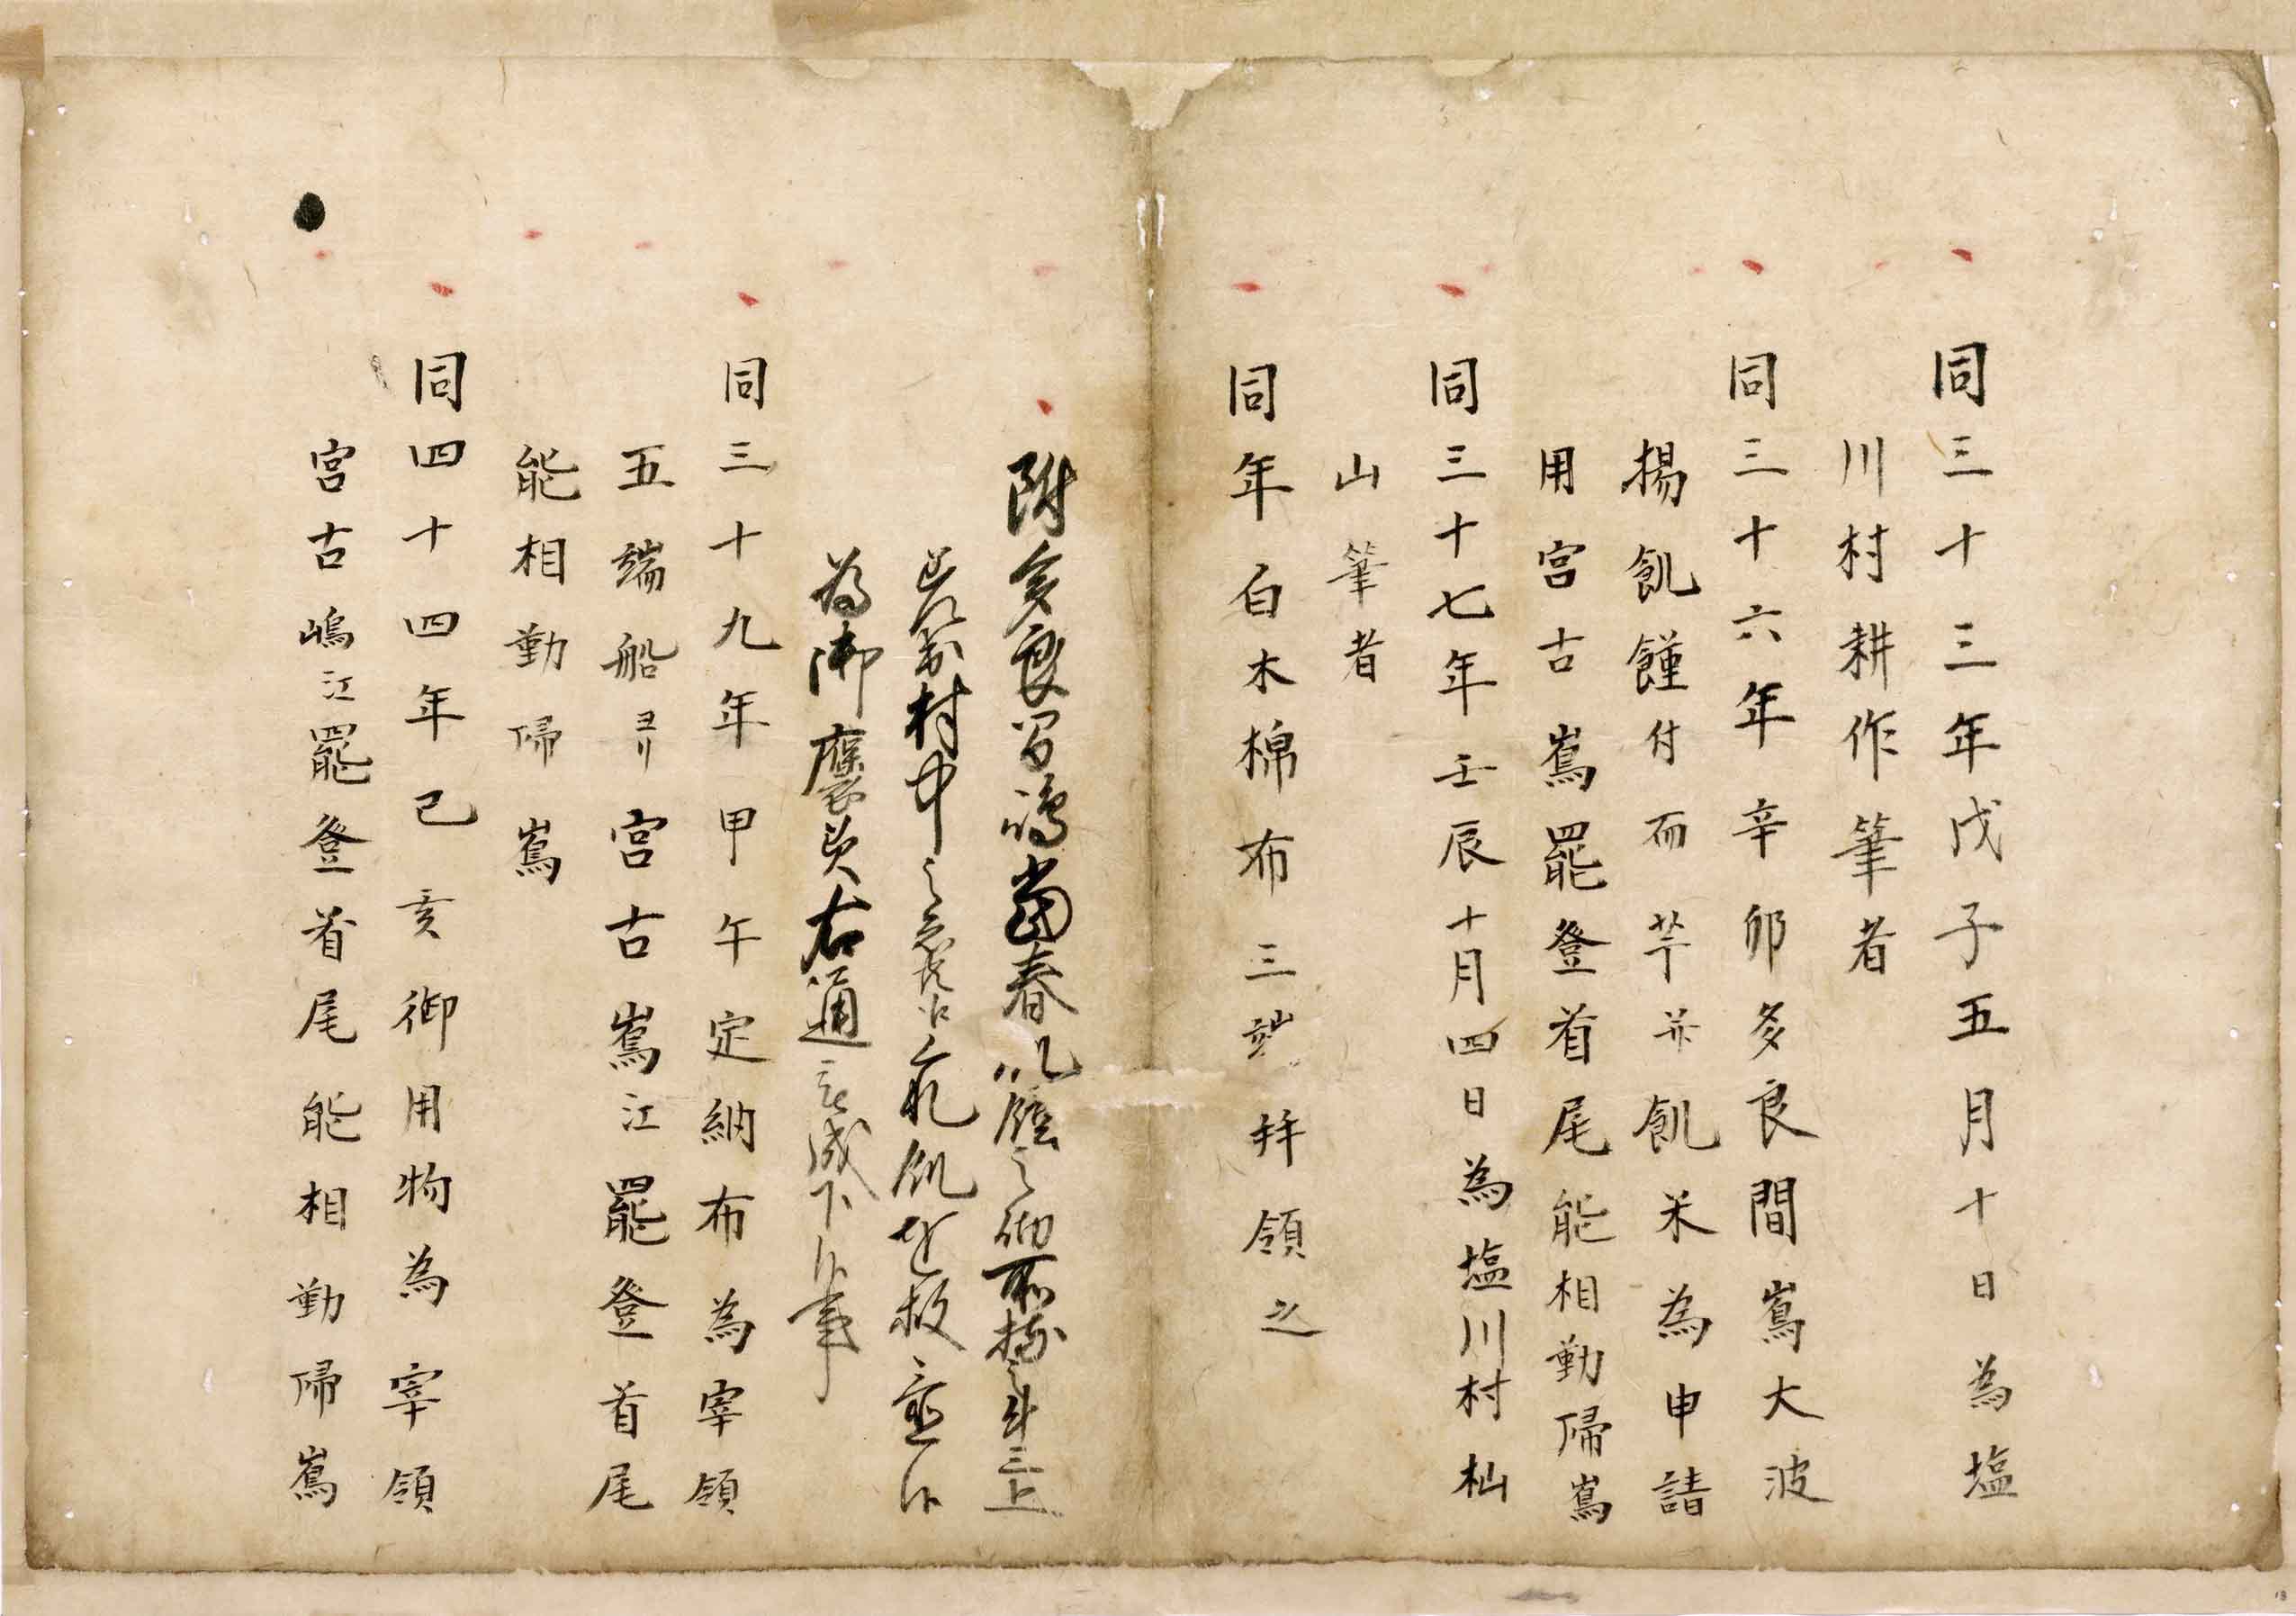 同三十三年戊子五月十日為塩
川村耕作筆者
同三十六年辛卯多良間嶌大波
揚飢饉付而芋并飢米為申請
用宮古嶌罷登首尾能相勤帰嶌
同三十七年壬辰十月四日為塩川村杣
山筆者
同年白木棉布三端拝領之
附多良間嶋当春飢饉之砌所持之米三上
村中之者飢を救
為御褒美右通被成下候事
同三十九年甲午定納布為宰領
五端船ヨリ宮古嶌江罷登首尾
能相勤帰嶌
同四十四年己亥御用物為宰領
宮古嶋江罷登首尾能相勤帰嶌